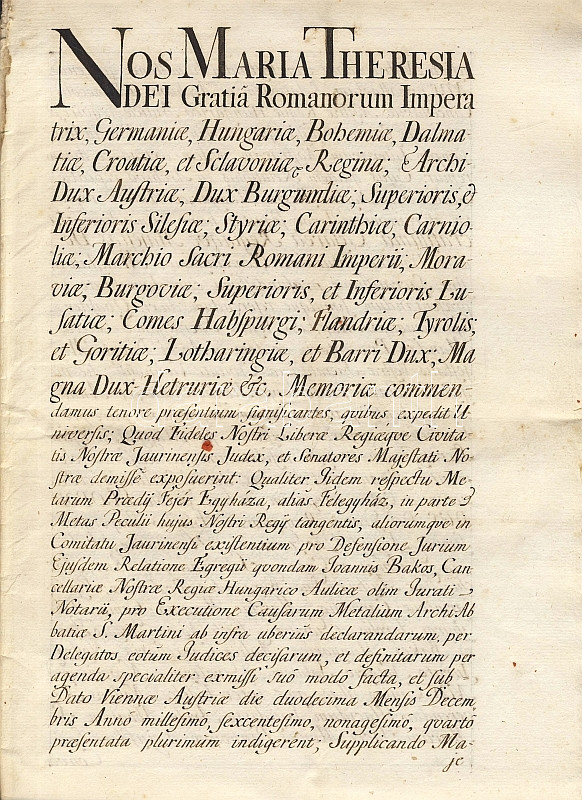 NOS MARIA THERESIA
DEI Gratiã Romanorum Impera
trix, Germaniæ, Hungariæ, Bohemiæ, Dalma-
tiæ, Croatiæ, et Sclavoniæ, Regina; Archi-
Dux Auſtriæ; Dux Burgundiæ; Superioris, &
Inferioris Sileſiæ; Styriæ; Carinthiæ; Carnio-
liæ; Marchio Sacri Romani Imperii; Mora-
viæ; Burgoviæ; Superioris, et Inferioris Lu-
ſatiæ; Comes Habſpurgi; Flandriæ; Tyrolis;
et Goritiæ; Lotharingiæ, et Barri Dux; Ma
gna Dux Hetruriæ &c. Memoriæ commen-
damus tenore præsentium ſignificantes, qvibus expedit U
niverſis; Quòd Fideles Noſtri Liberæ Regiæqve Civita-
tis Noſtræ Jaurinenſis Judex, et Senatores Majeſtati No-
ſtræ demiſſè expoſuerint: Qualiter Iidem reſpectu Me-
tarum Prædÿ Fejér Egyháza, aliàs Felegyház, in parte
Metas Peculii hujus Noſtri Regÿ tangentis, aliorumqve in
Comitatu Jaurinenſi exiſtentium pro Defenſione Jurium
Ejuſdem Relatione Egregii qvondam Joannis Bakos, Can
cellariæ Noſtræ Regiæ Hungarico Aulicæ olim Jurati
Notarii, pro Executione Cauſarum Metalium Archi-Ab
batiæ S. Martini ab infra uberiùs declarandarum, per
Delegatos eotùm Judices deciſarum, et definitarum per
agenda ſpecialiter exmiſſi ſuô modô facta, et ſub
Dato Viennæ Auſtriæ die duodecima Menſis Decem
bris Annô milleſimô, ſexcenteſimo, nonageſimô, qvartô
præſentata plurimùm indigerent; Supplicando Ma-
je